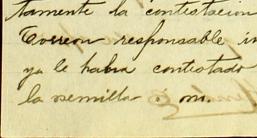 tamente la contestacion
Torreon responsable in
ya le habia contestado
la semilla